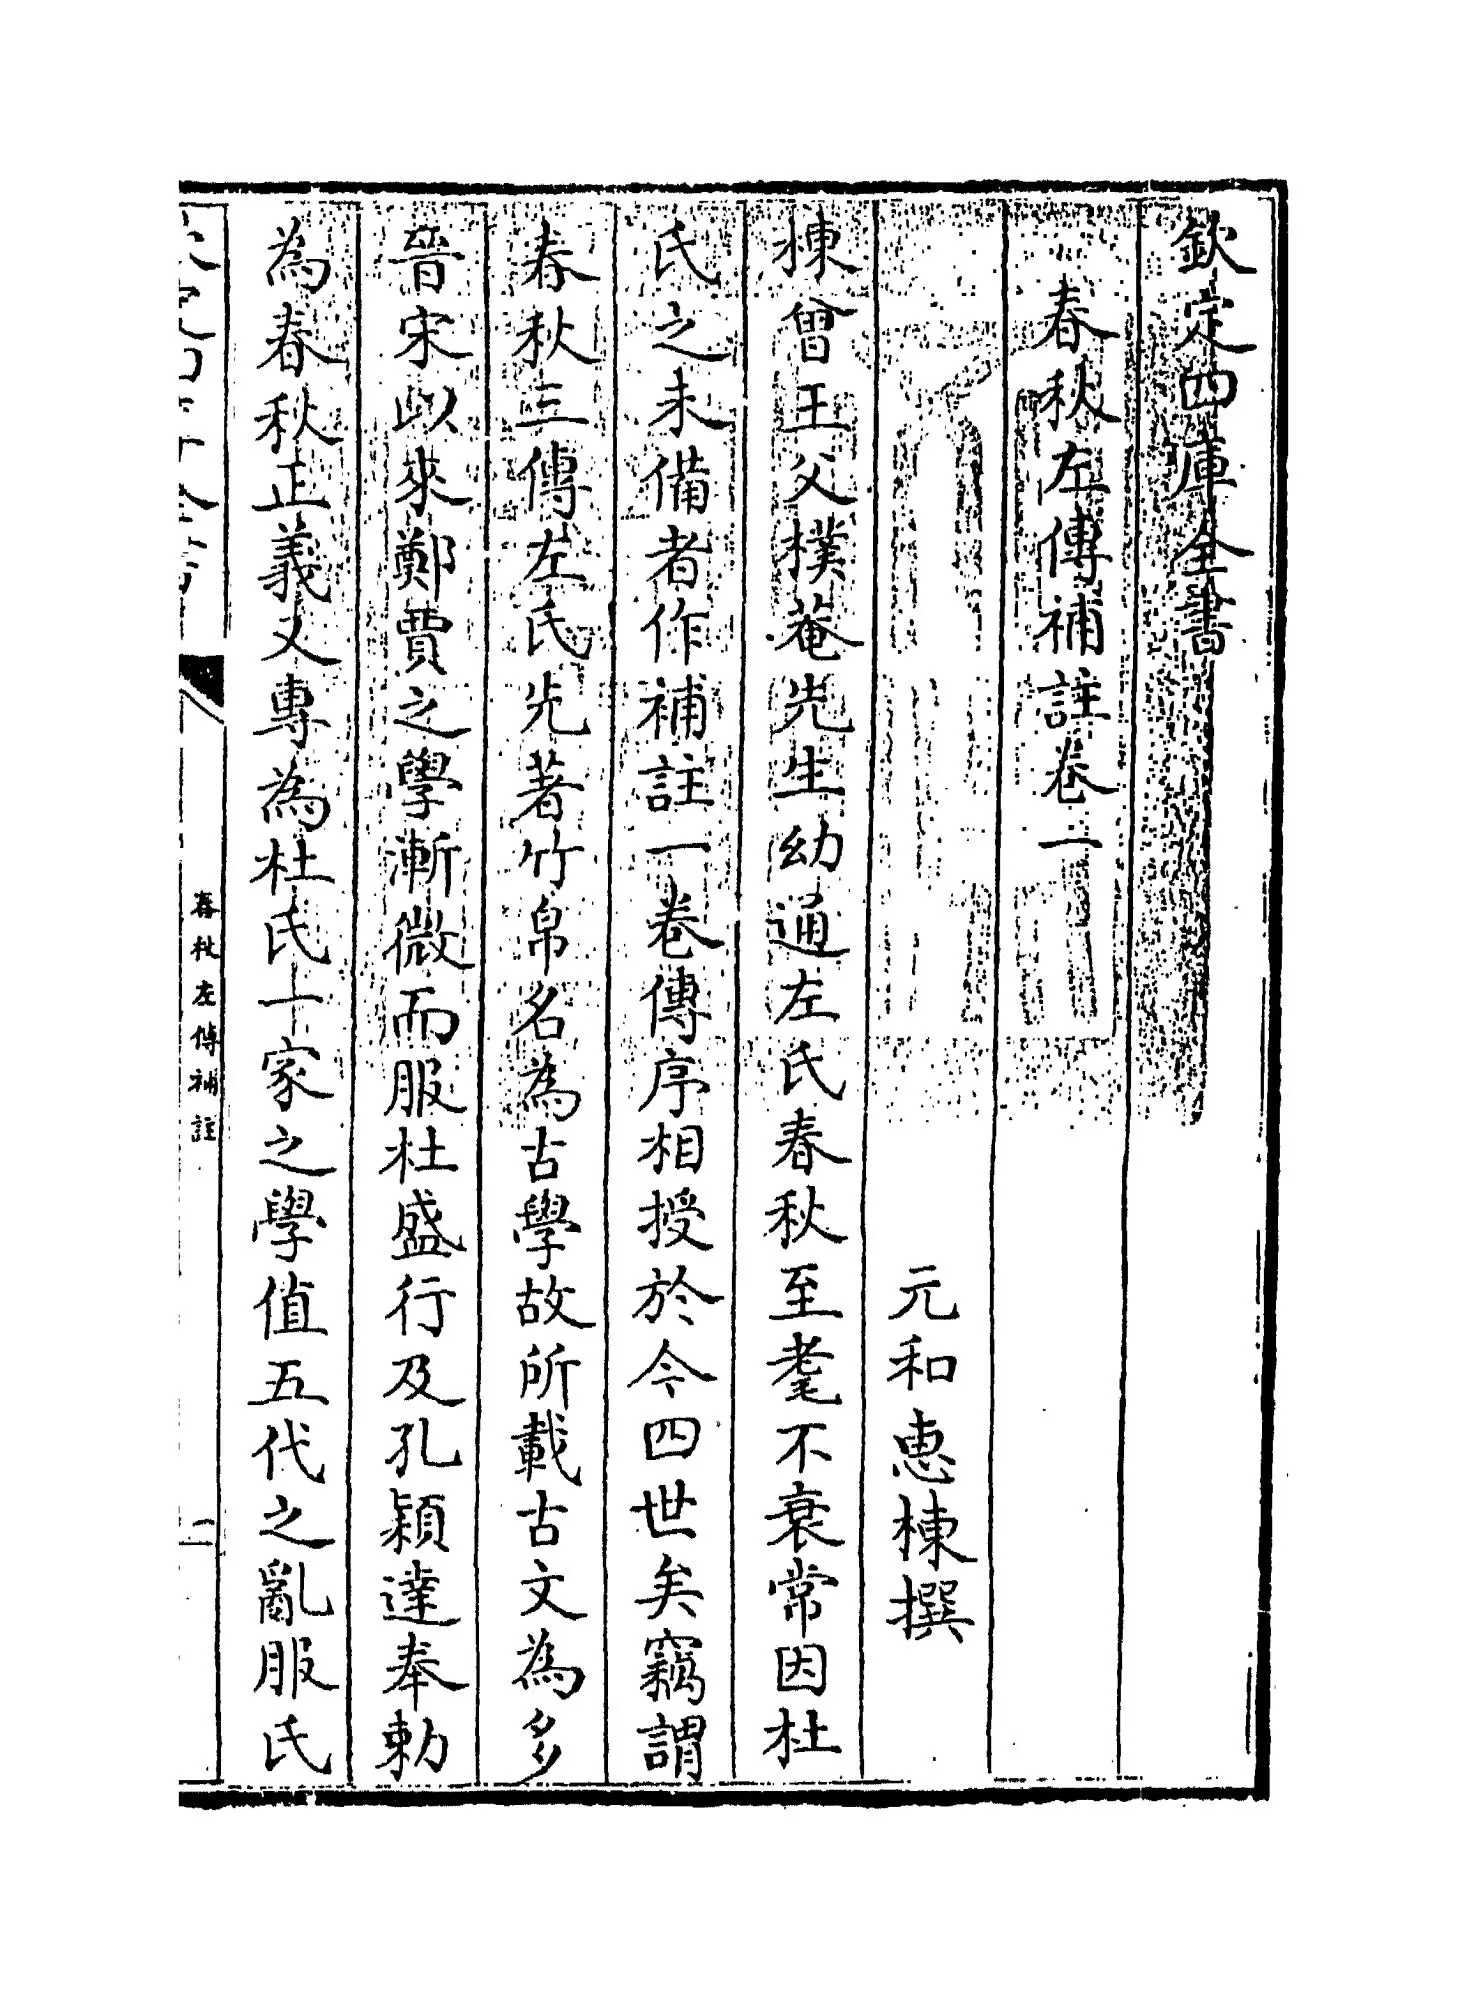 欽定四庫全書
春秋左傳補註卷一
元和惠棟撰
棟曾王父樸菴先生幼通左氏春秋至耄不衰常因杜
氏之未備者作補註一卷傳序相授於今四世矣竊謂
春秋三傳左氏先著竹帛名為古學故所載古文為多
晉宋以來鄭賈之學漸微而服杜盛行及孔穎達奉勅
為春秋正義又專為杜氏一家之學值五代之亂服氏
春秋左傳補註